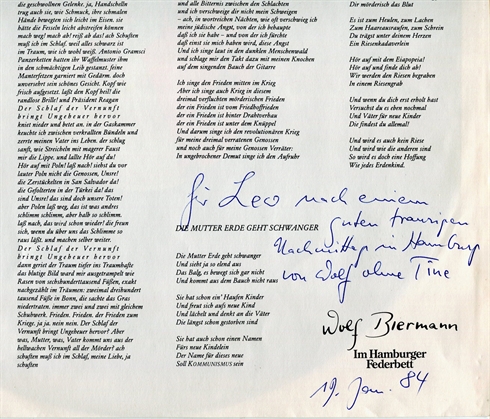 die geschwollenen Gelenke, ja, Handschellen
trug auch sie, wie Schmuck, ihre schmalen
Hände bewegten sich leicht im Eisen, sie
hätte die Fesseln leicht abstreifen können
mach weg! mach ab! reiß ab das! ach Schuften
muß ich im Schlaf, weil alles schwarz ist
im Traum, wie ich wohl weiß. Antonio Gramsci
Panzerketten hatten ihr Waffenmuster ihm
in den schmächtigen Leib gestanzt, feine
Musterfetzen garniert mit Gedärm, doch
unversehrt sein schönes Gesicht. Kopf wie
frisch aufgesetzt, laßt den Kopf heil! die
randlose Brille! und Präsident Reagan
Der Schlaf der Vernunft
bringt Ungeheuer hervor
kniet nieder und betet an, in der Gaskammer
keucht ich zwischen verkrallten Bündeln und
zerrte meinen Vater ins Leben, der schlug
sanft, wie Streicheln mit magerer Faust
mir die Lippe, und lallte Hör auf du!
Hör auf mit Poln! laß nach! siehst du vor
lauter Poln nicht die Genossen, Unsre!
die Zerstückelten in San Salvador da!
die Gefolterten in der Türkei da! das
sind Unsre! das sind doch unsere Toten!
aber Polen laß weg, das ist was andres
schlimm schlimm, aber halb so schlimm,
laß nach, das wird schon wieder! die freun
sich, wenn du über uns das Schlimmste so
raus läßt, und machen selber weiter.
Der Schlaf der Vernunft
bringt Ungeheuer hervor
dann geriet der Traum tiefer ins Traumhafte
das blutige Bild ward mir ausgetrampelt wie
Rasen von sechshunderttausend Füßen, exakt
nachgezählt im Träumen: zweimal dreihundert
tausend Füße in Bonn, die sachte das Gras
niedertraten, immer zwei und zwei mit gleichem
Schuhwerk. Frieden, Frieden, der Frieden zum
Kriege, ja ja, nein nein. Der Schlaf der
Vernunft bringt Ungeheuer hervor? Aber
was, Mutter, was, Vater kommt uns aus der
hellwachen Vernunft all der Mörder? ach
schuften muß ich im Schlaf, meine Liebe, ja
schuften
und alle Bitternis zwischen den Schlachten
und ich verschweige dir nicht mein Schweigen
– ach, in wortreichen Nächten, wie oft verschwieg ich
meine jüdische Angst, von der ich behaupte
daß ich sie habe – und von der ich fürchte
daß einst sie mich haben wird, diese Angst
Und ich singe laut in den dunklen Menschenwald
und schlage mir den Takt dazu mit meinen Knochen
auf dem singenden Bauch der Gitarre
Ich singe den Frieden mitten im Krieg
Aber ich singe auch Krieg in diesem
dreimal verfluchten mörderischen Frieden
der ein Frieden ist vom Friedhoffrieden
der ein Frieden ist hinter Drahtverhau
der ein Frieden ist unter dem Knüppel
Und darum singe ich den revolutionären Krieg
für meine dreimal verratenen Genossen
und noch auch für meine Genossen Verräter:
In ungebrochener Demut singe ich den Aufruhr
DIE MUTTER ERDE GEHT SCHWANGER
Die Mutter Erde geht schwanger
Und sieht ja so elend aus
Das Balg, es bewegt sich gar nicht
Und kommt aus dem Bauch nicht raus
Sie hat schon ein' Haufen Kinder
Und freut sich aufs neue Kind
Und lächelt und denkt an die Väter
Die längst schon gestorben sind
Sie hat auch schon einen Namen
Fürs neue Kindelein
Der Name für dieses neue
Soll KOMMUNISMUS sein
Dir mörderisch das Blut
Es ist zum Heulen, zum Lachen
Zum Haareausraufen, zum Schrein
Du trägst unter deinem Herzen
Ein Riesenkadaverlein
Hör auf mit dem Eiapopeia!
Hör auf und finde dich ab!
Wir werden den Riesen begraben
In einem Riesengrab
Und wenn du dich erst erholt hast
Versuchst du es eben nochmal
Und Väter für neue Kinder
Die findest du allemal!
Und wird es auch kein Riese
Und wird wie die anderen sind
So wird es doch eine Hoffnung
Wie jedes Erdenkind.
für Leo nach einem
guten traurigen
Nachmittag in Hamburg
von Wolf ohne Tine
Wolf Biermann
Im Hamburger
Federbett
19. Jan. 84